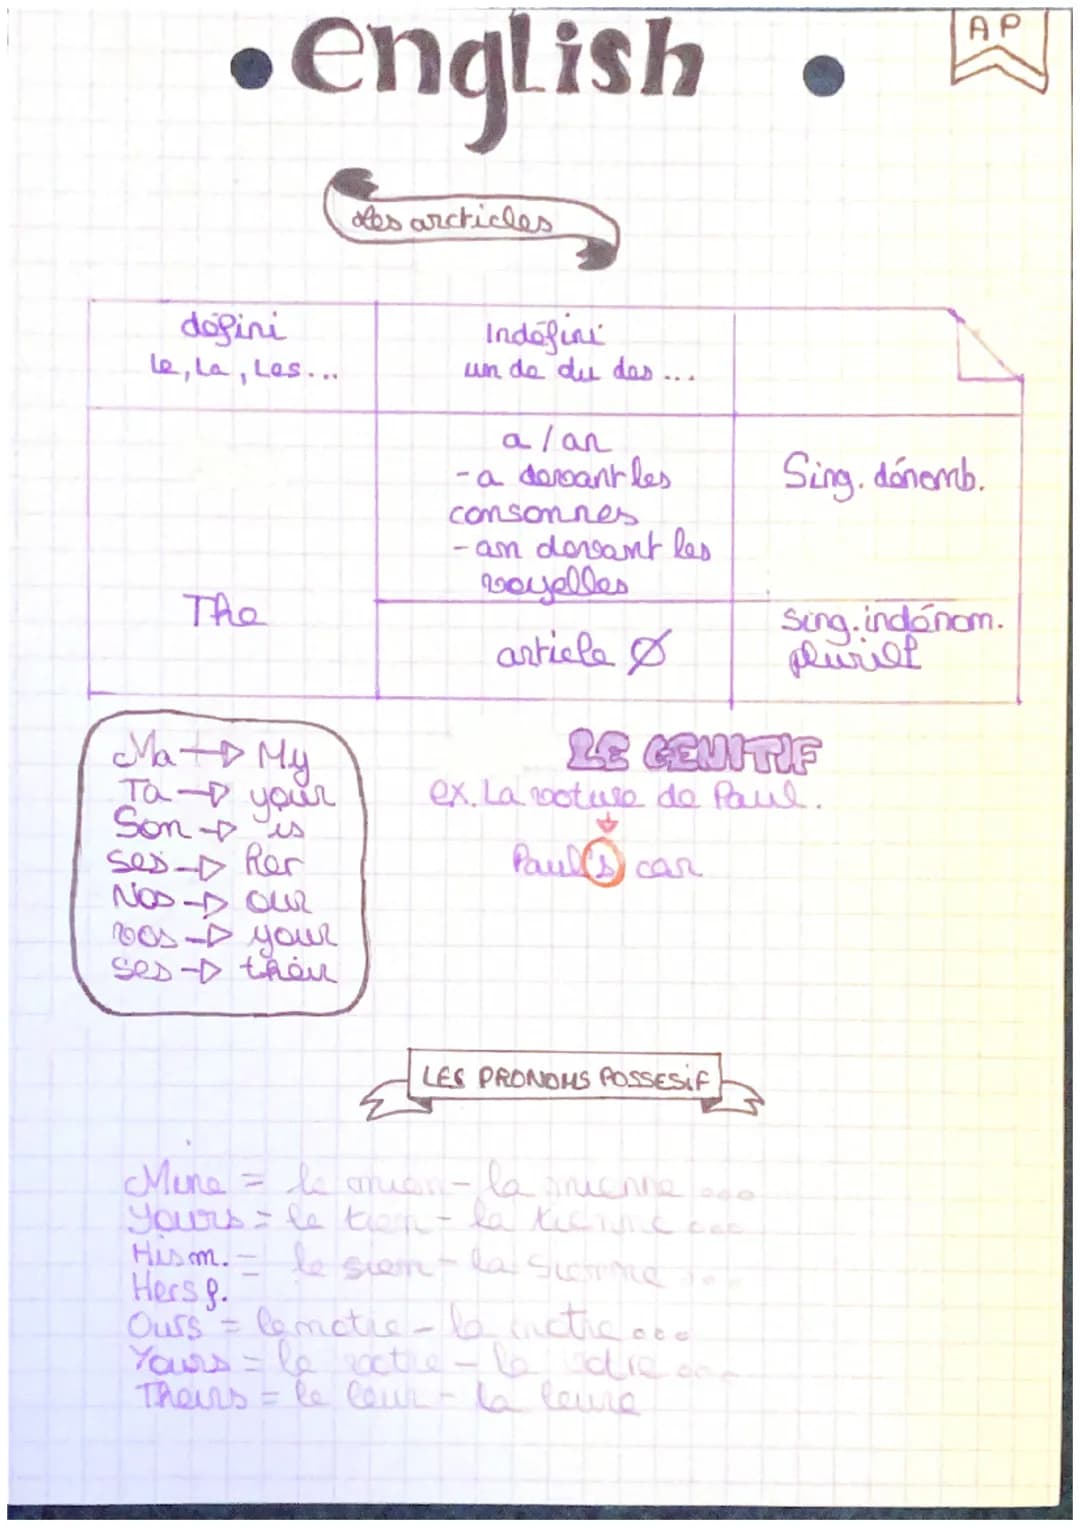 • english •
AP
Les arcticles
défini
le, la, Les...
Indéfini
un de du des ...
The
a / an
- a devant les
consonnes
- an devant les
voyelles
Sing. dénomb.
article Ø
sing. indénom.
pluriel
Ma → My
Ta → your
Son → is
ses → her
Nos → our
vos → your
ses → their
LE GENITIF
ex. La voture de Paul.
Paul's car
LES PRONOMS POSSESIF
Mine = le mien - la mienne ...
Yours = le tien - la tienne ...
His m. = le sien - la sienne ...
Hers f.
Ours = le notre - la notre ...
Yours = le votre - la votre ...
Theirs = le leur - la leure